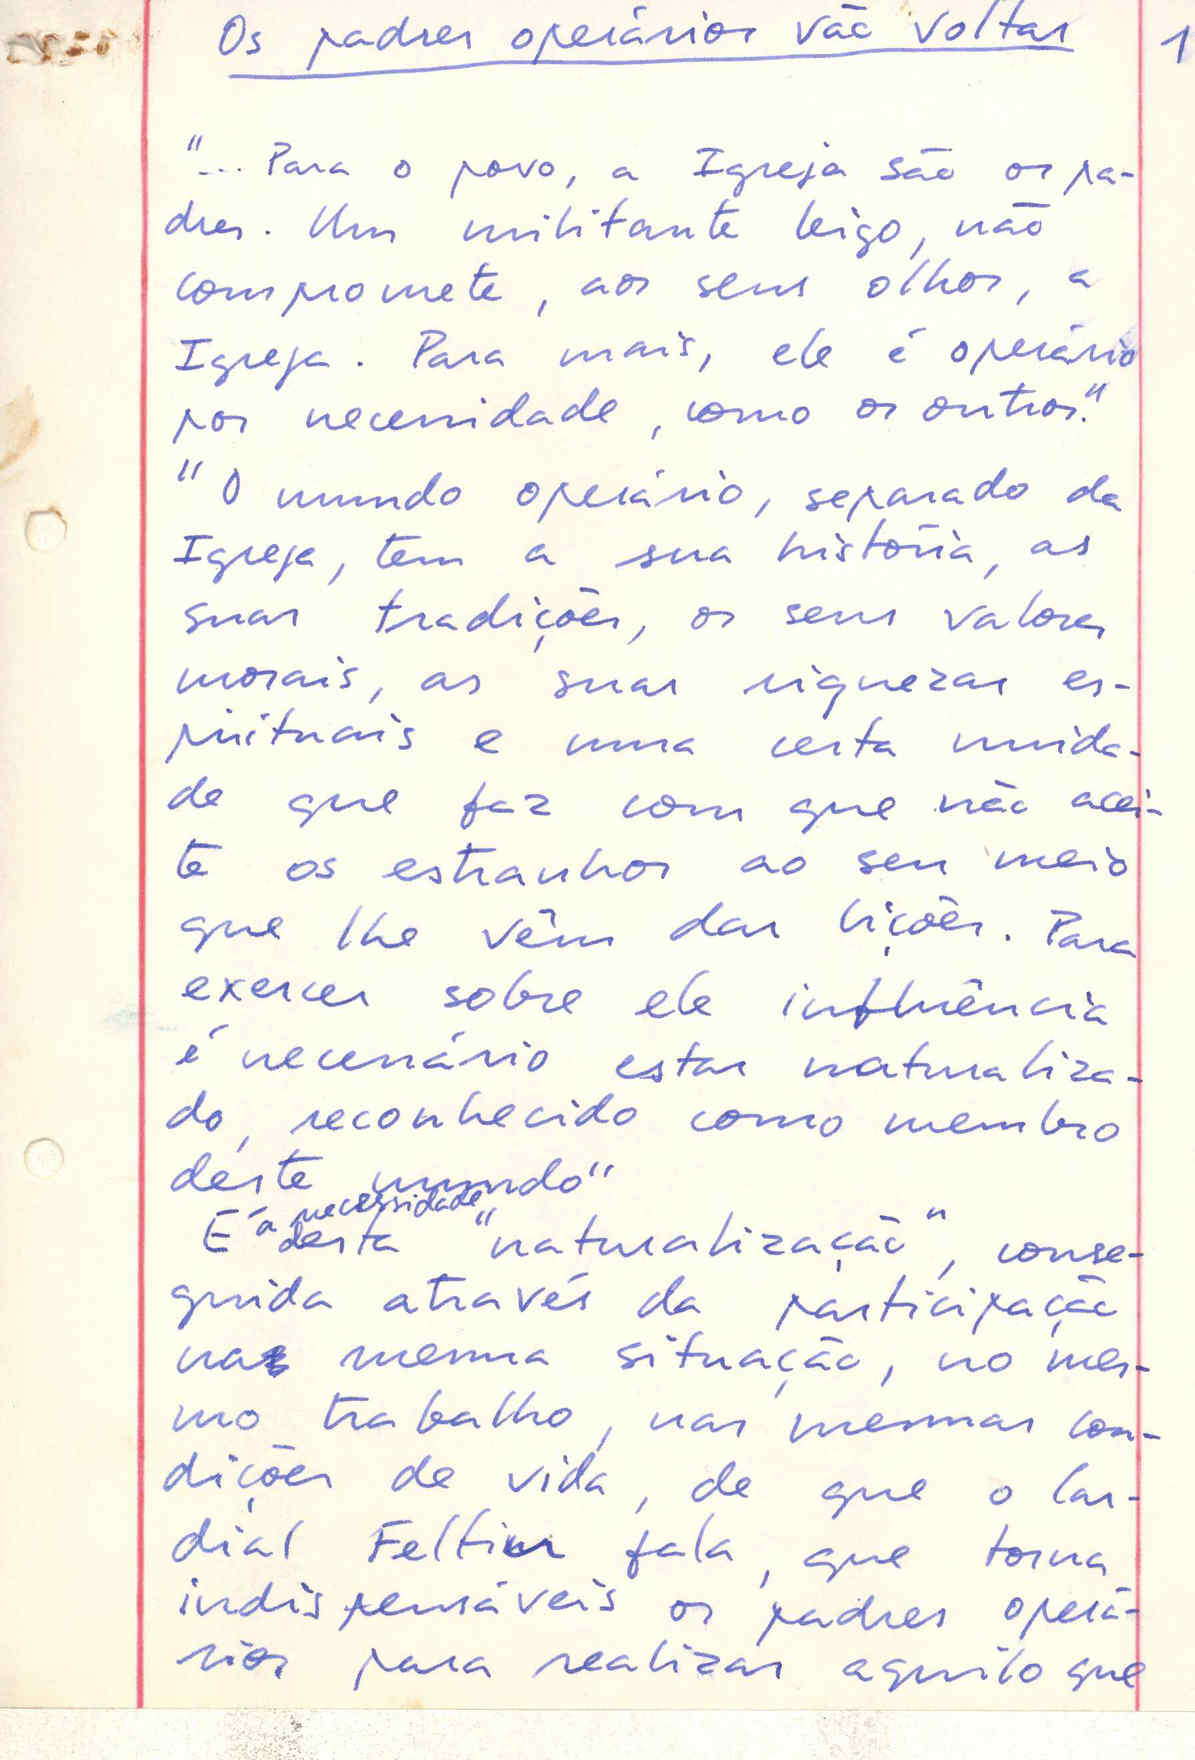 Os padres operários vão voltar 1
"... Para o povo, a Igreja são os pa-
dres. Um militante leigo, não
compromete, aos seus olhos, a
Igreja. Para mais, ele é operário
por necessidade, como os outros."
"O mundo operário, separado da
Igreja, tem a sua história, as
suas tradições, os seus valores
morais, as suas riquezas es-
pirituais e uma certa unida-
de que faz com que não acei-
te os estranhos ao seu meio
que lhe vêm dar lições. Para
exercer sobre ele influência
é necessário estar naturaliza-
do, reconhecido como membro
deste mundo"
É a necessidade desta "naturalização", conse-
guida através da participação
na mesma situação, no mes-
mo trabalho, nas mesmas con-
dições de vida, de que o Car-
dial Feltin fala, que torna
indispensáveis os padres operá-
rios para realizar aquilo que